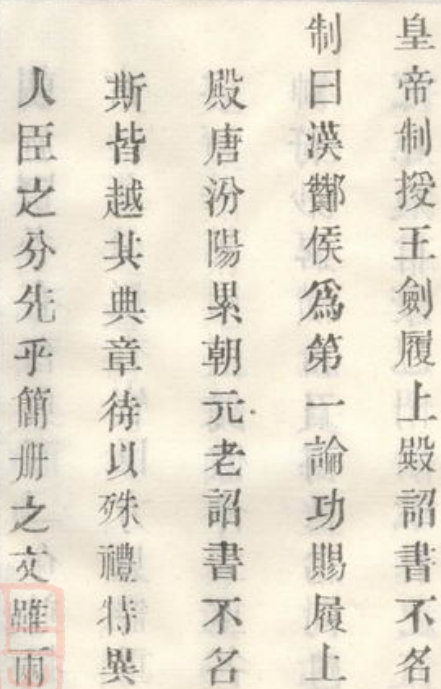 皇帝制授王劍履上殿詔書不名
制曰漢酇侯爲第一論功賜履上
殿唐汾陽累朝元老詔書不名
斯皆越其典章待以殊禮特異
人臣之分先乎簡册之文雖兩